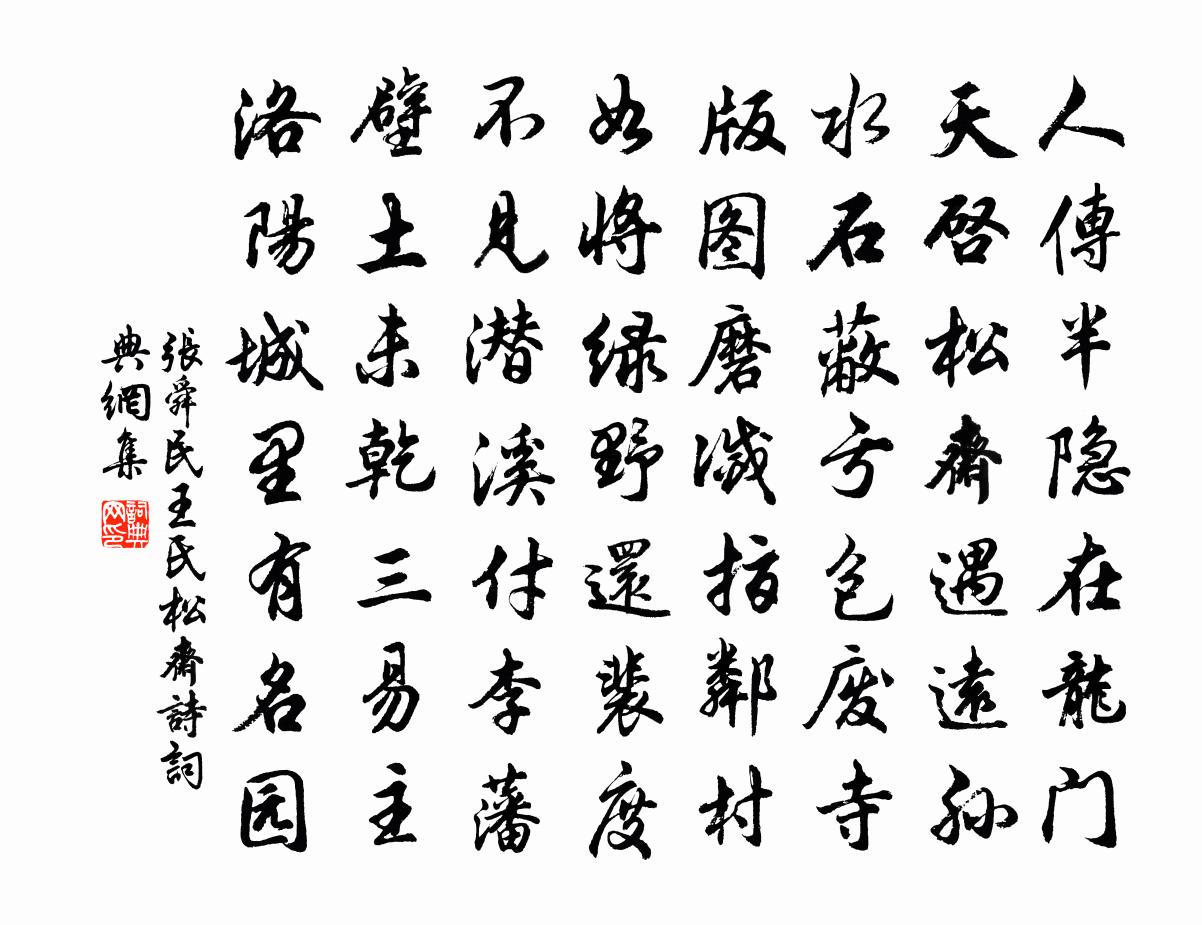 人傳半隐在龍门
天啓松齋遇遠孙
水石蔽亏包废寺
版图磨滅指鄰村
如將绿野還裴度
不見潜溪付李藩
壁土未乾三易主
洛陽城里有名园
張舜民王氏松齋詩詞
典網集
詞典网印